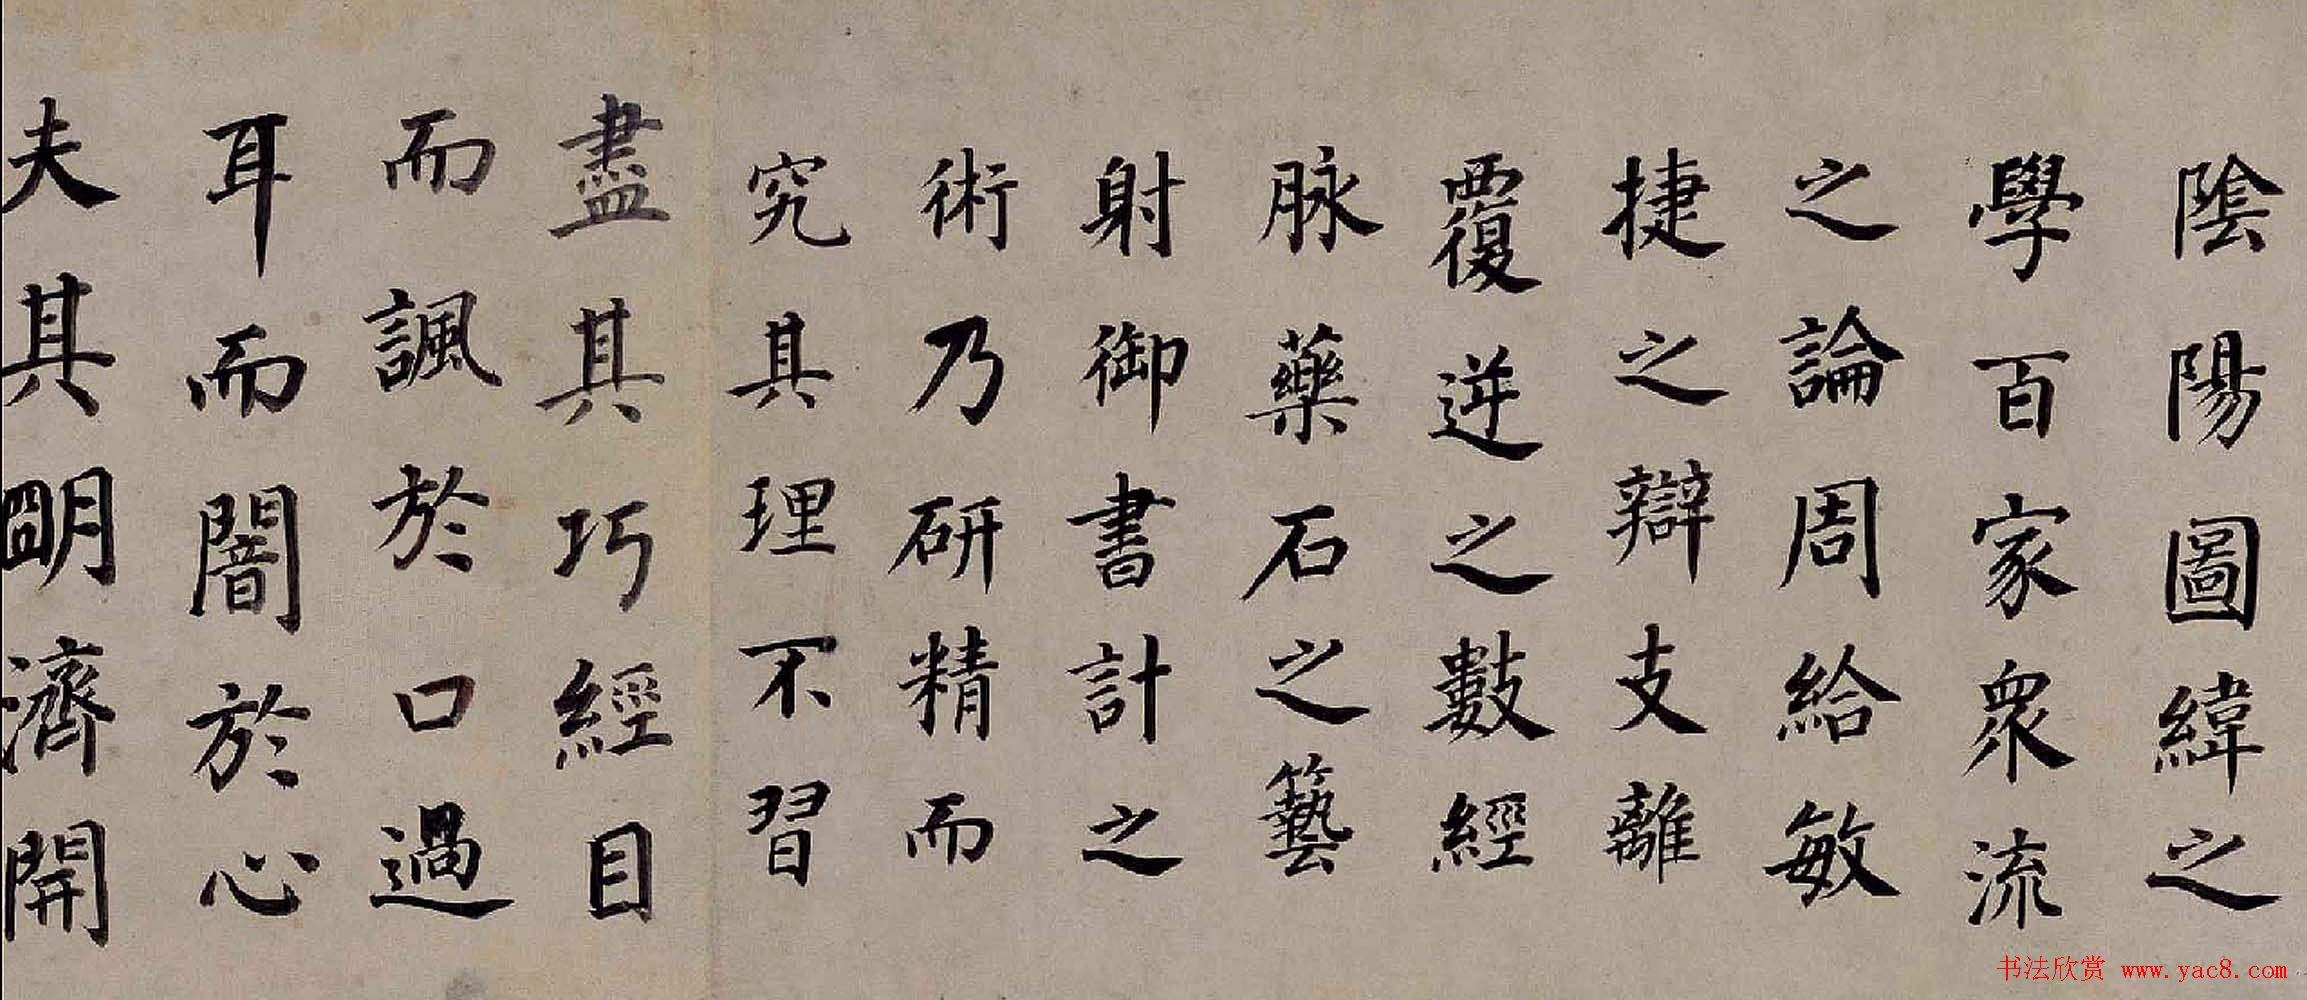 陰陽圖緯之
學百家衆流
之論周給敏
捷之辯支離
覆逆之數經
脉藥石之藝
射御書計之
術乃研精而
究其理不習
盡其巧經目
而諷於口過
耳而闇於心
夫其明濟開
书法欣赏 www.yac8.com